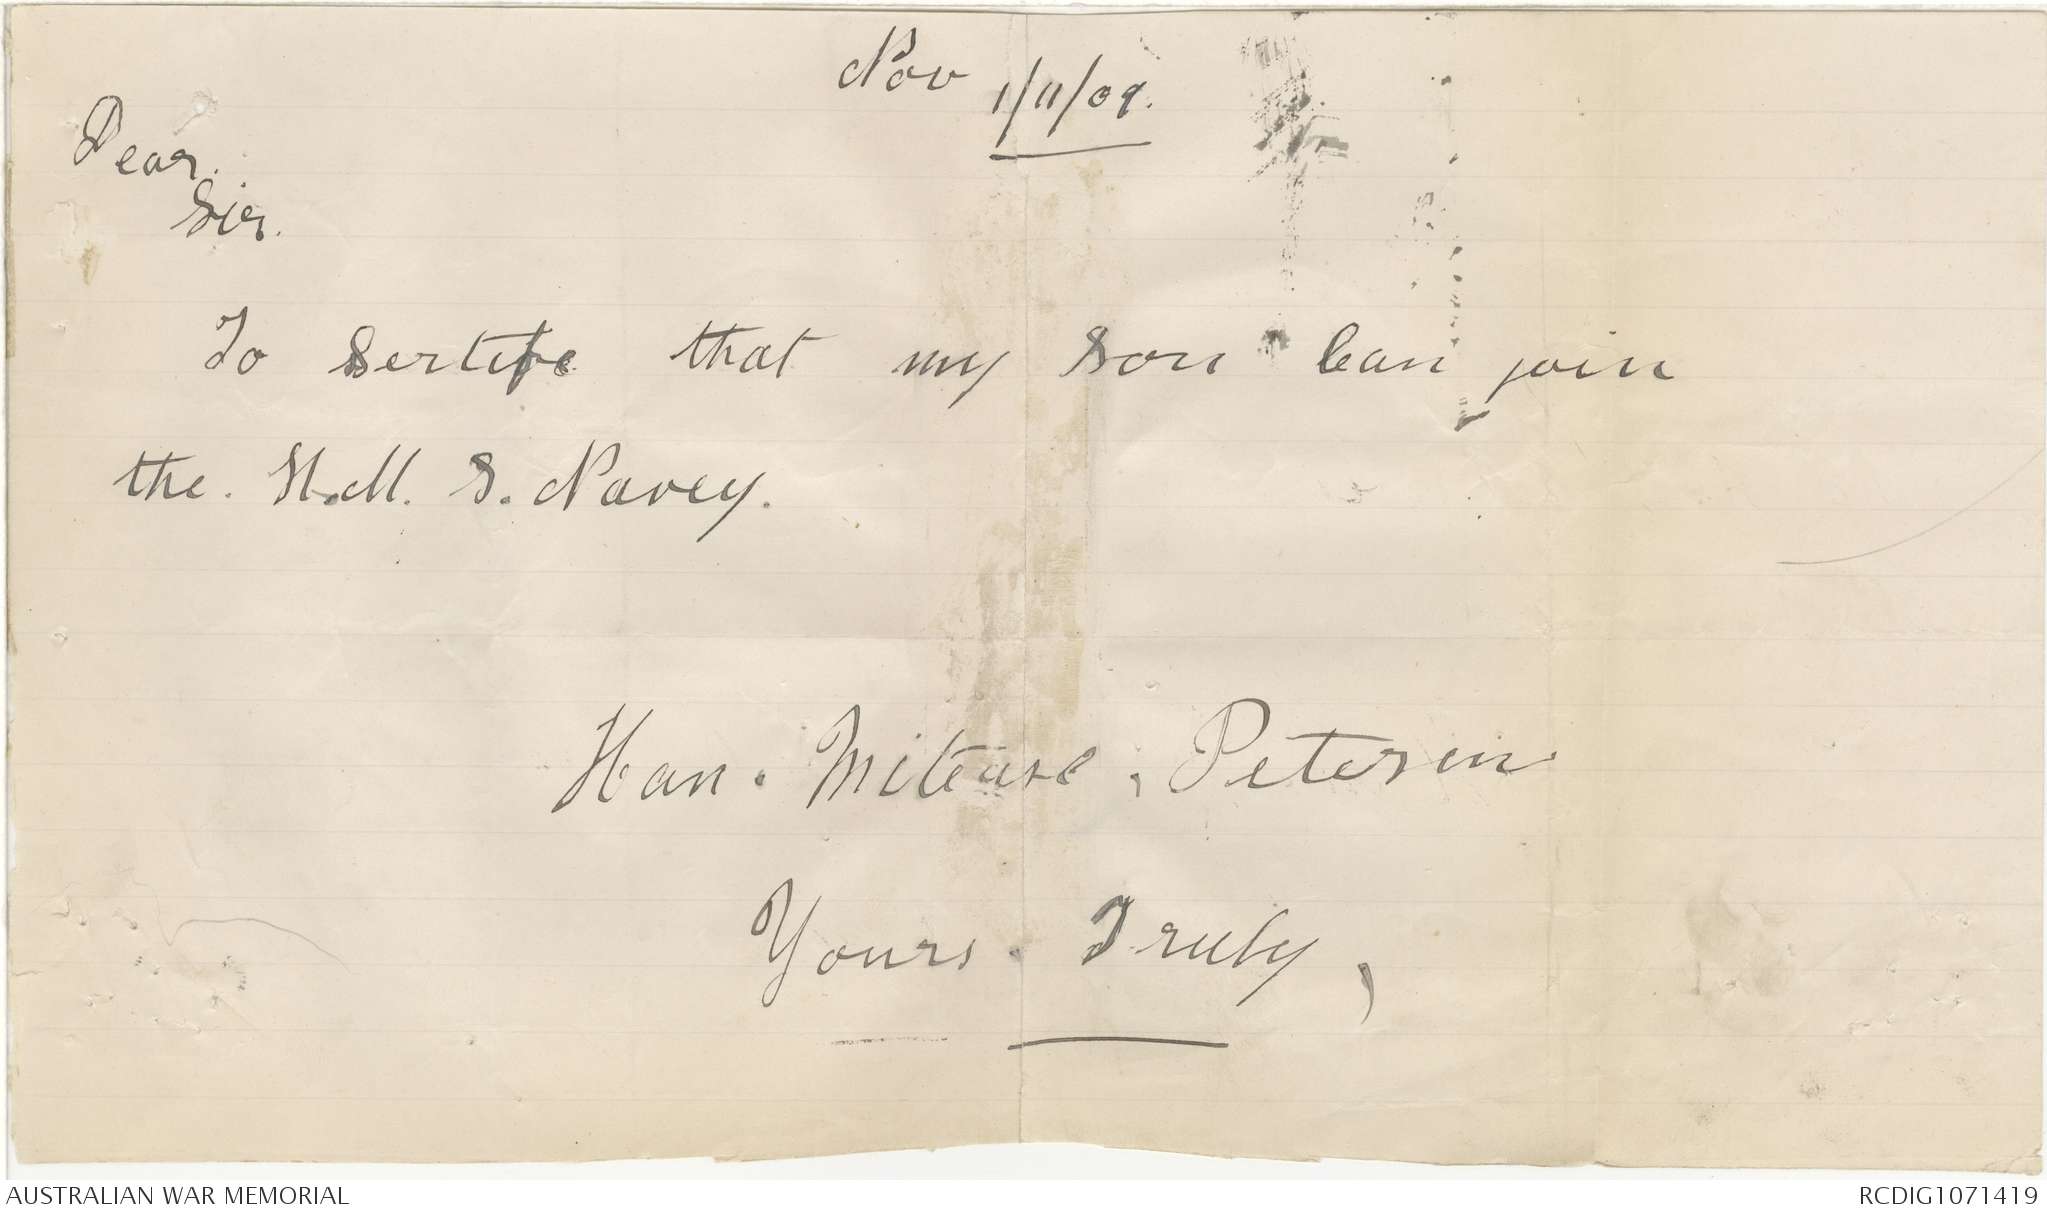 Nov 1/11/09.
Dear.
Sir.
To Sertife that my Son Can join
the. H.M. S. Navey.
Han. Mitease, Petersen
Yours. Truly,
AUSTRALIAN WAR MEMORIAL
RCDIG1071419